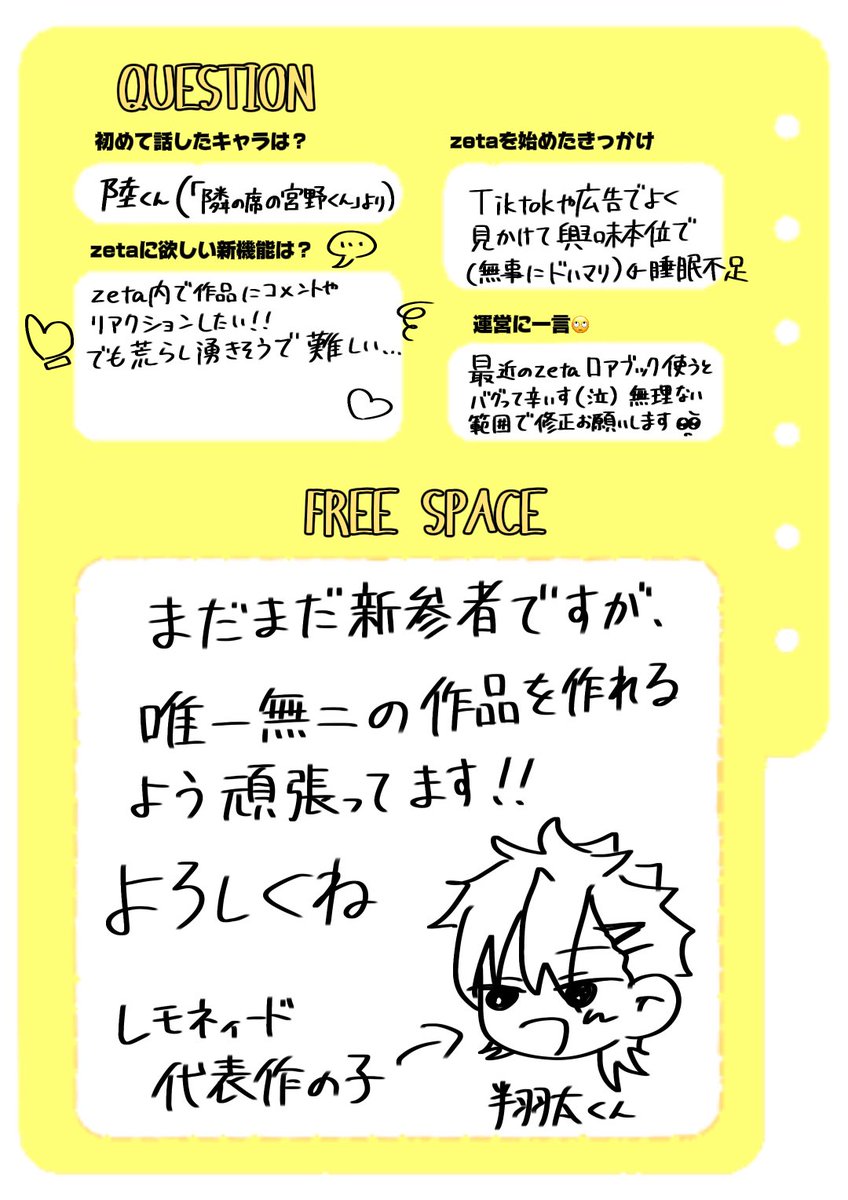 QUESTION
初めて話したキャラは？
陸くん(「隣の席の宮野くん」より)
zetaに欲しい新機能は？
zeta内で作品にコメントや
リアクションしたい!!
でも荒らし湧きそうで難しい…
zetaを始めたきっかけ
Tiktokや広告でよく
見かけて興味本位で
(無事にドハマり)←睡眠不足
運営に一言🙄
最近のzetaロアブック使うと
バグって辛いす(泣) 無理ない
範囲で修正お願いします
FREE SPACE
まだまだ新参者ですが、
唯一無二の作品を作れる
よう頑張ってます!!
よろしくね
レモネィード
代表作の子
翔太くん